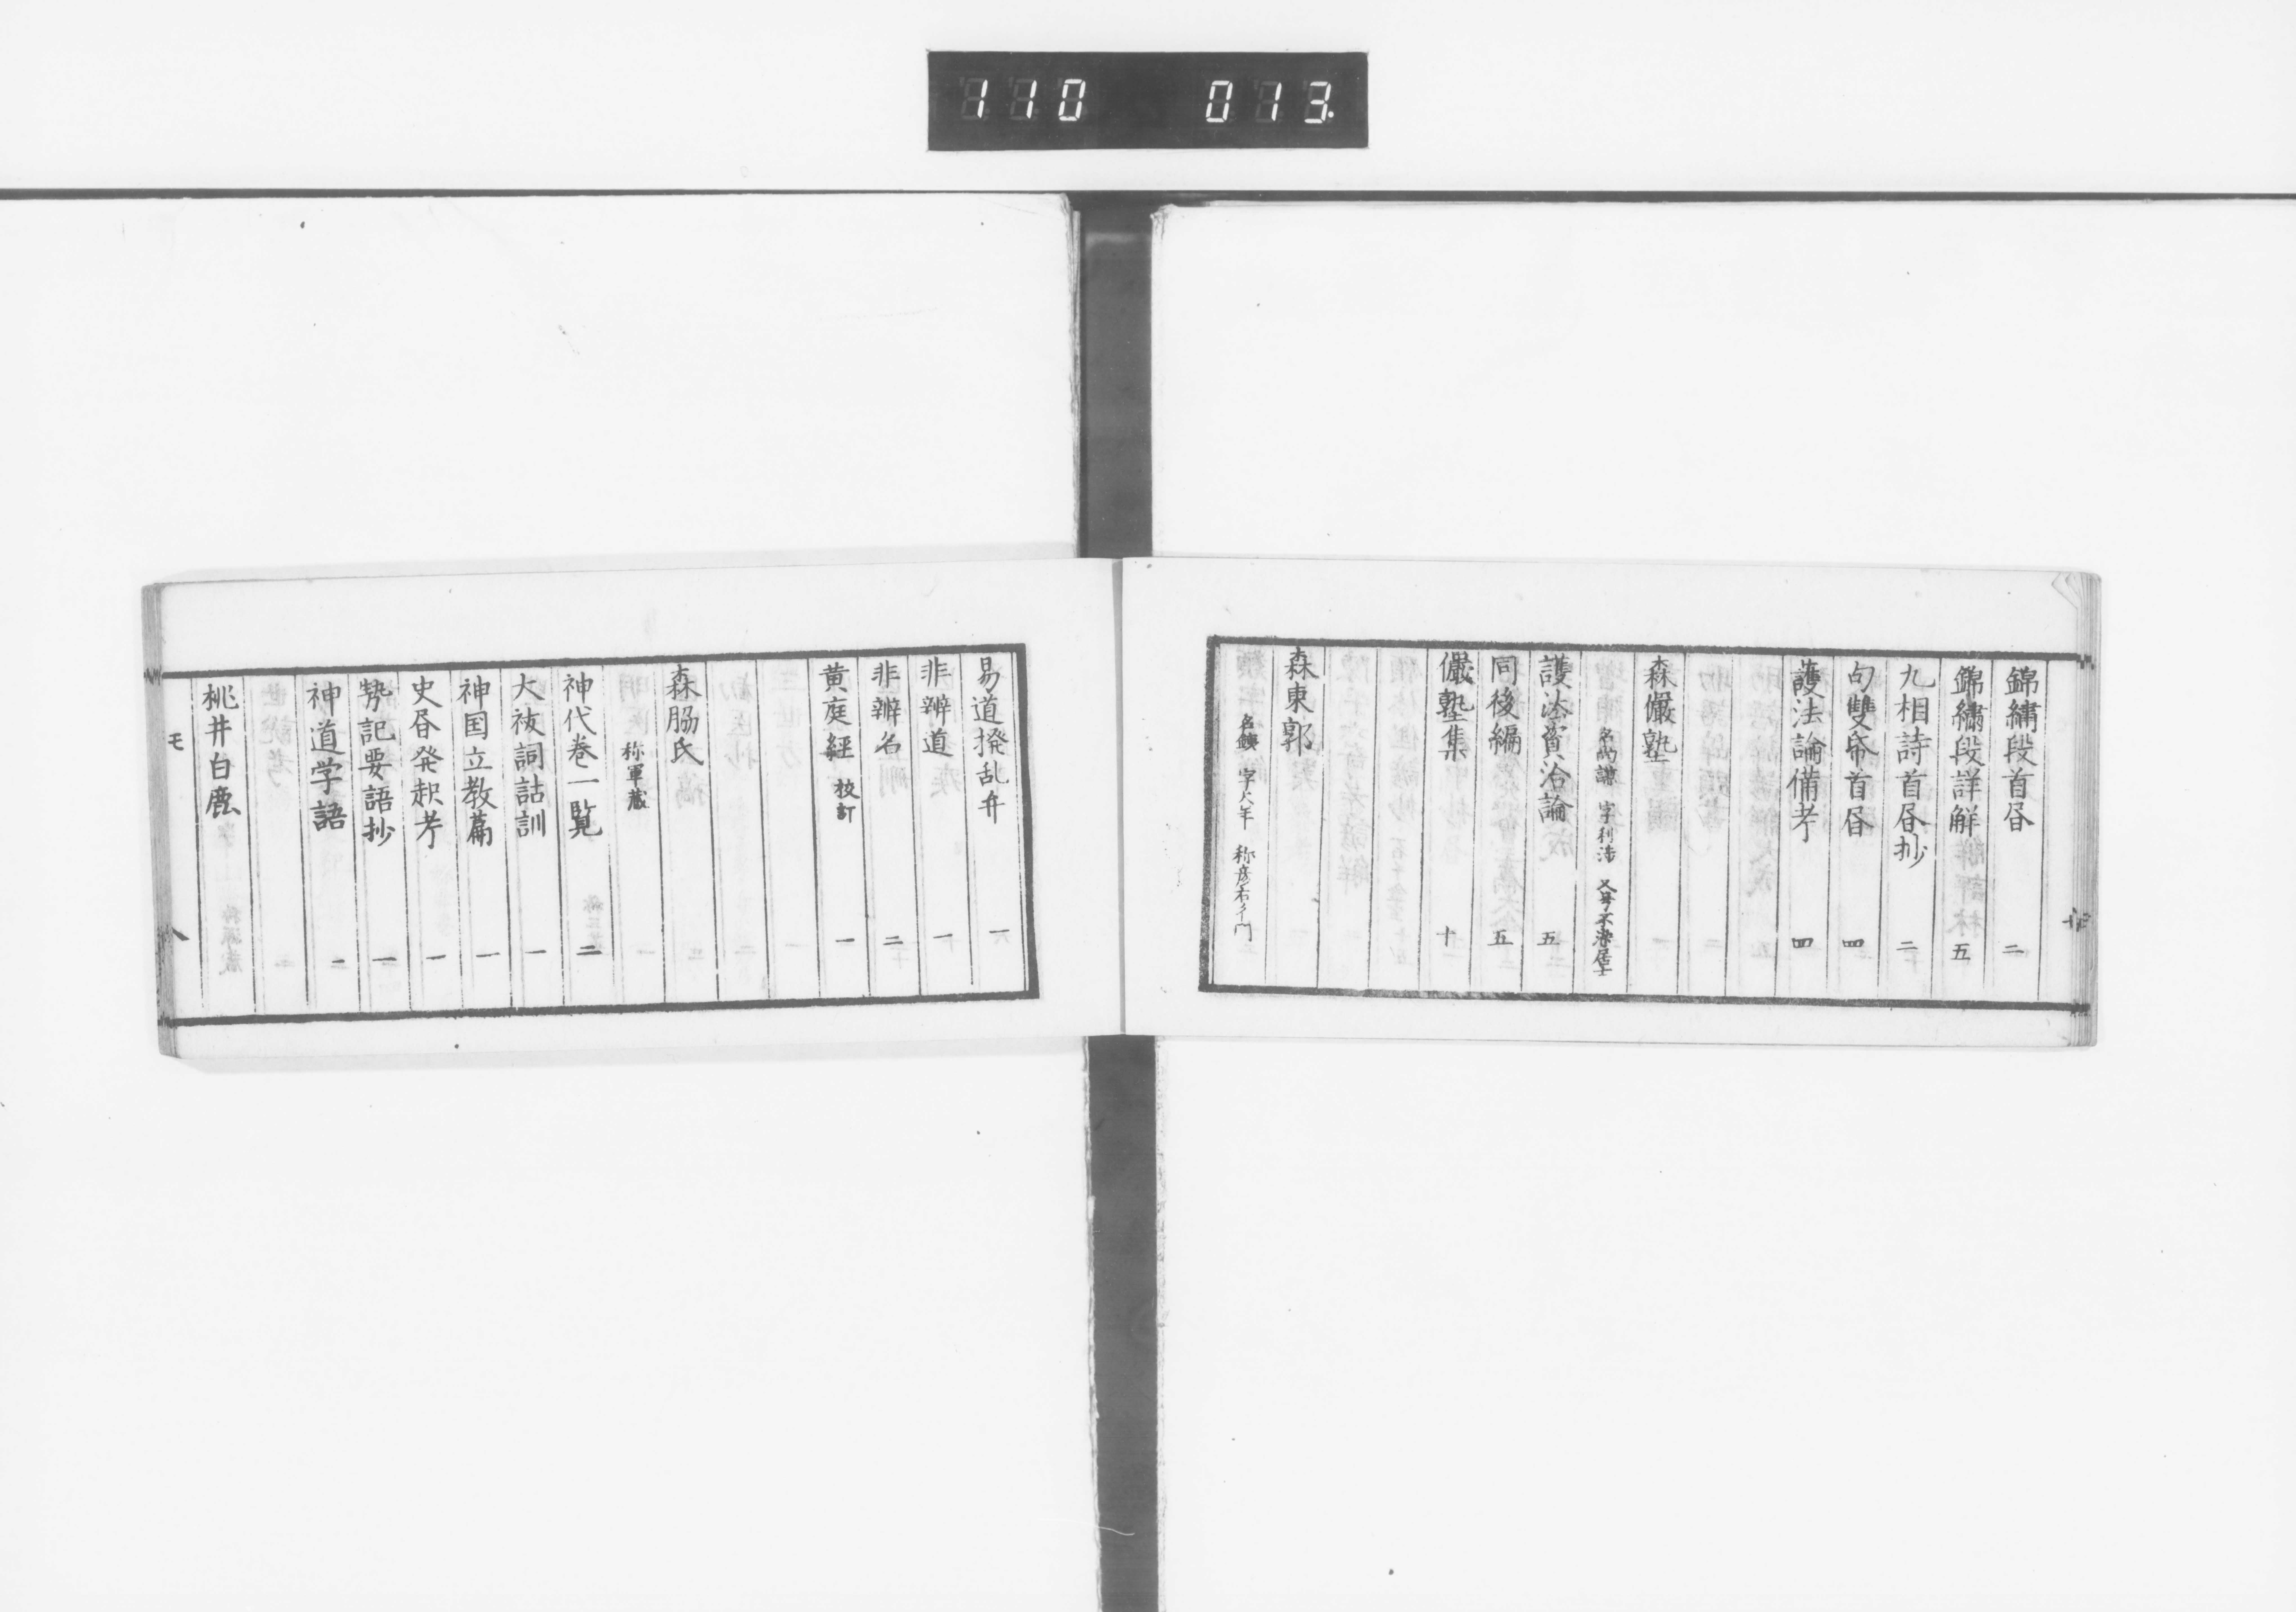 110 013
錦繍段首昏 二
錦繍段詳解 五
九相詩首昏抄 二
句雙帋首昏 四
護法論備考 四
森儼塾
名尚謙 字利渉 又号不染居士
護法資治論 五
同後編 五
儼塾集 十
森東郭
名鐵 字大年 称彦右衛門
易道撥乱弁 一
非辨道 一
非辨名 二
黄庭經 校訂 一
森脇氏
称軍蔵
神代巻一覧 二
大祓詞詁訓 一
神国立教篇 一
史昏発起考 一
㔟記要語抄 一
神道学語 二
桃井白鹿
モ 八